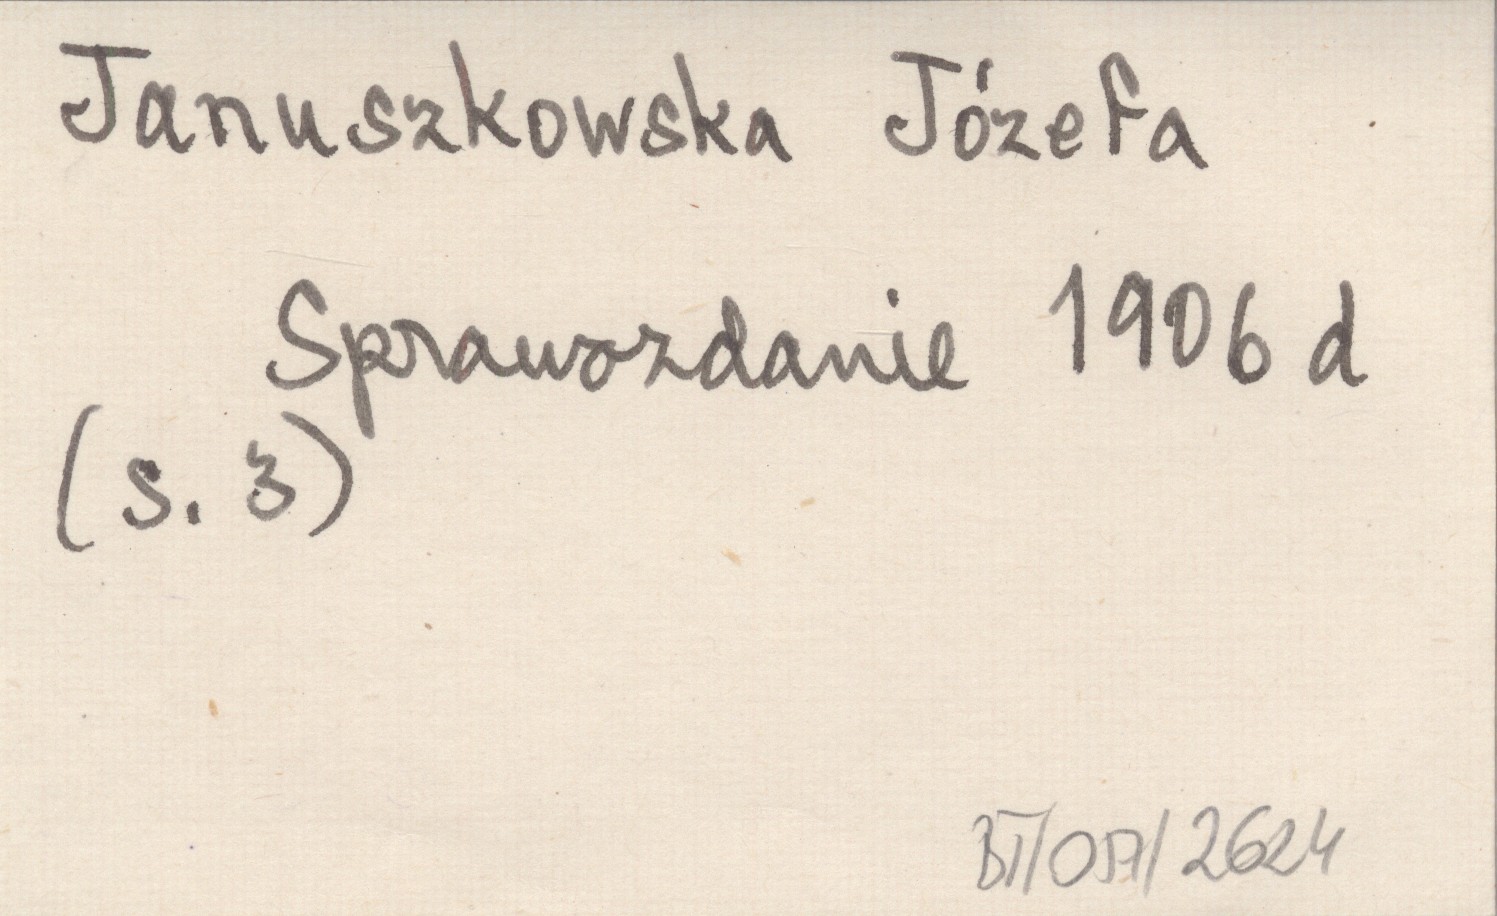 Januszkowska Józefa
Sprawozdanie 1906 d
(s. 3)
2624